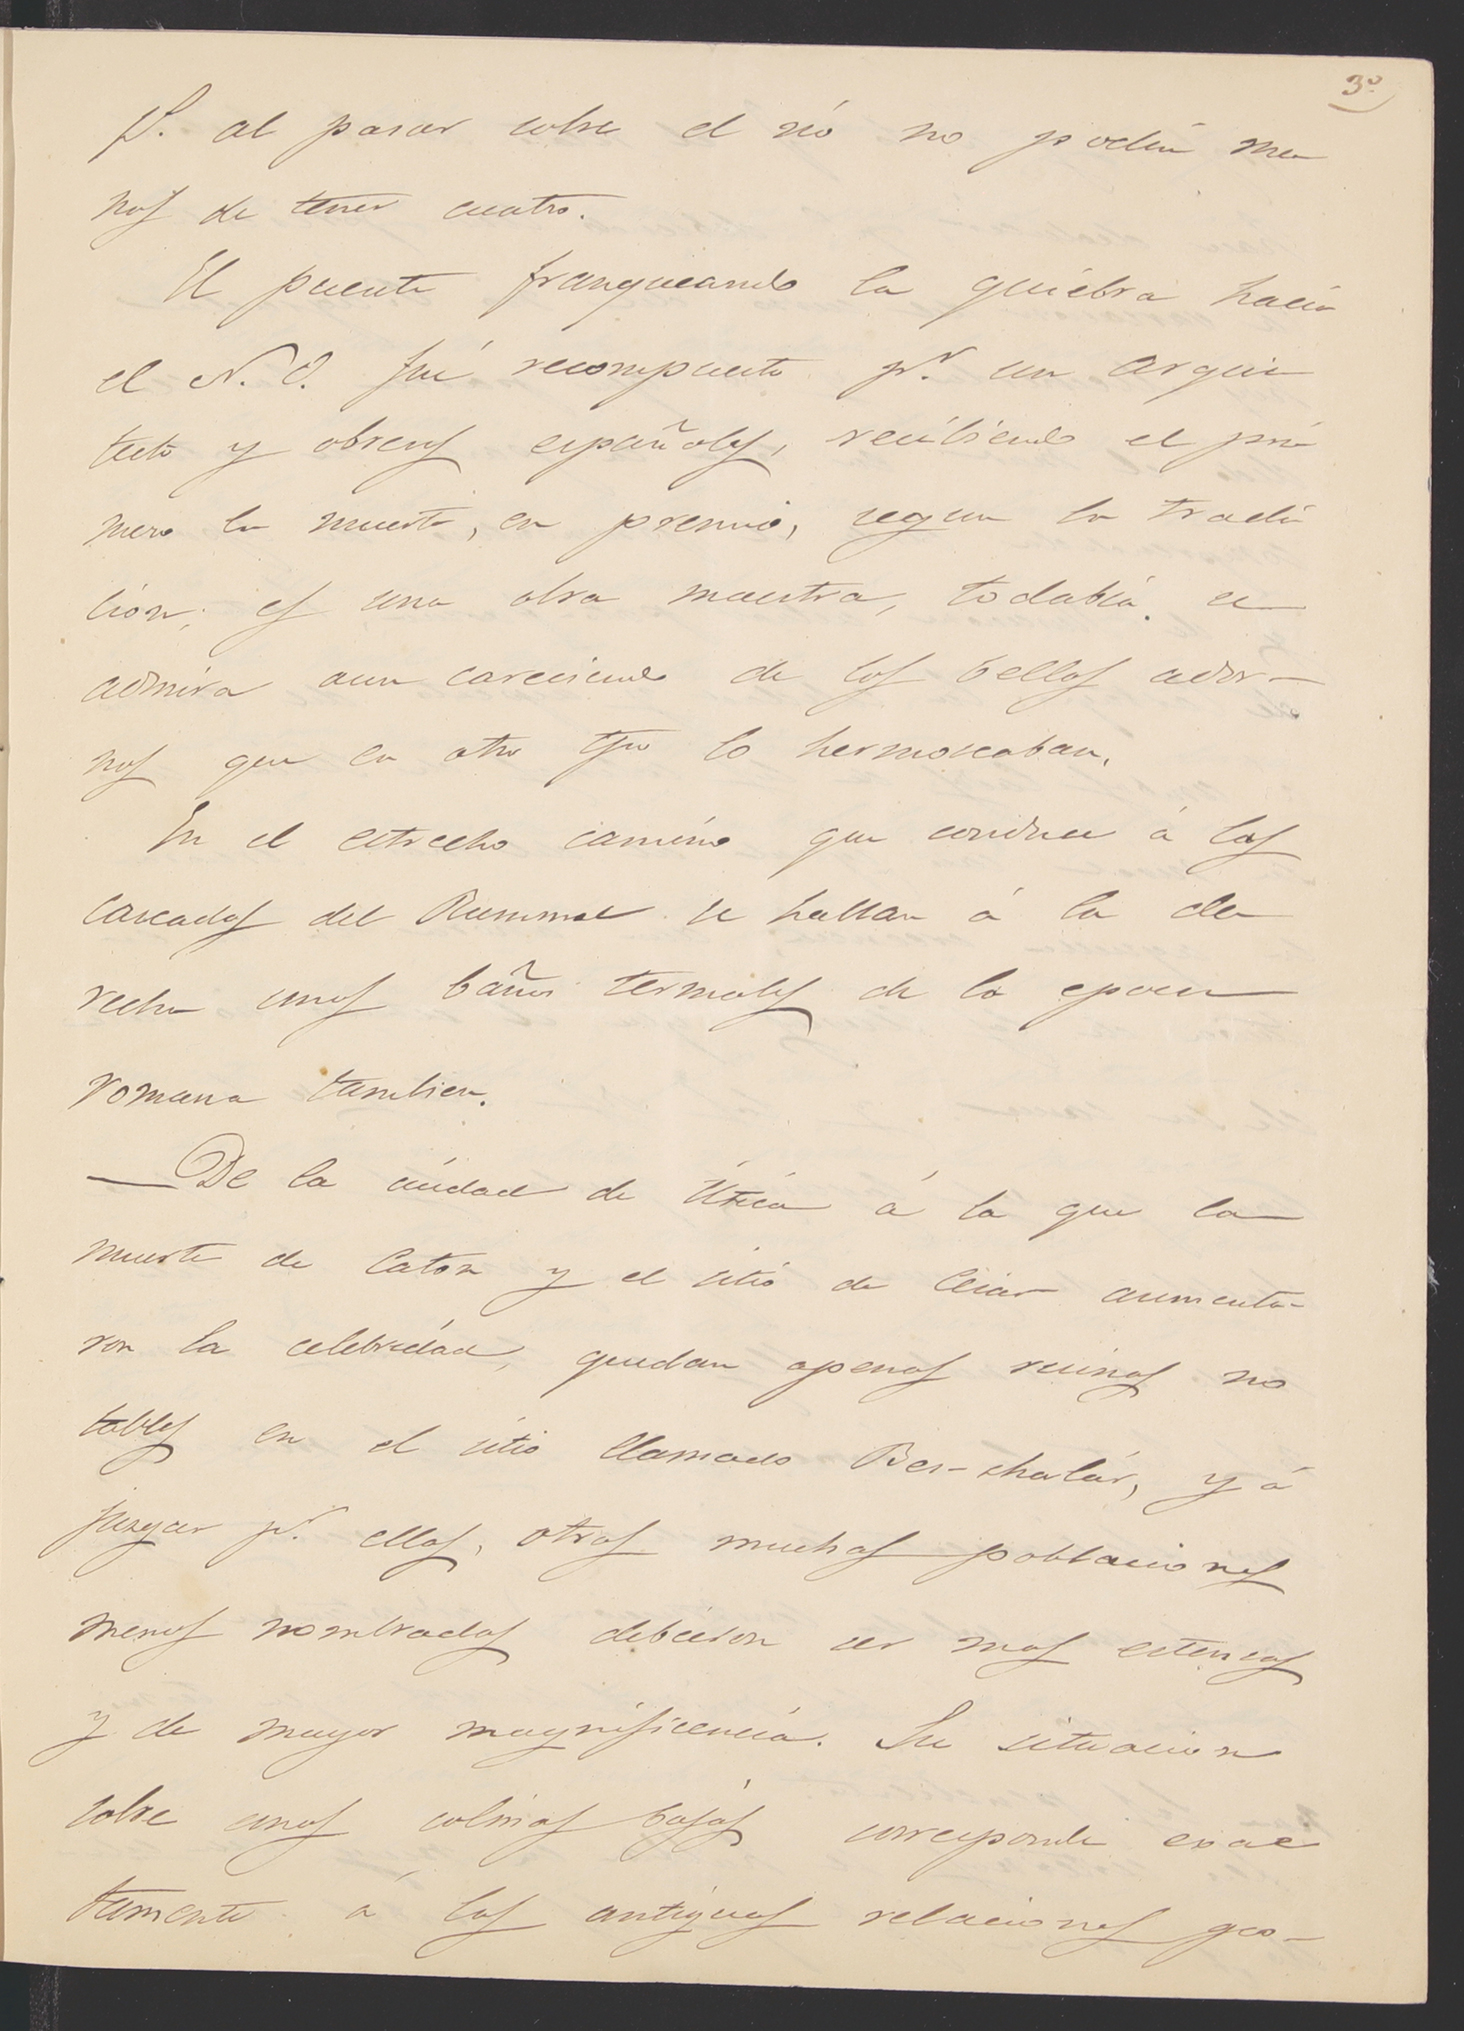 3º
S. al pasar sobre el rió no podia me
nos de tener cuatro.
El puente franqueando la quiebra hacia
el N. O. fué recompuesto pr. un arqui
tecto y obreros españoles, recibiendo el pri
mero la muerte, en premio, segun la tradi
cion; es una obra maestra, todabia se
admira aun careciendo de los bellos ador-
nos que en otro tpo lo hermoseaban.
En el estrecho camino que conduce á las
cascadas del Rummel se hallan á la de
recha unos baños termales de la epoca
romana tambien.
— De la ciudad de Utica á la que la
muerte de Caton y el sitio de Cesar aumenta-
ron la celebridad, quedan apenas ruinas no
tables en el sitio llamado Bou-chatár, y á
juzgar pr. ellas, otras muchas poblaciones
menos nombradas debieron ser mas estensas
y de mayor magnificencia. Su situacion
sobre unas colinas bajas corresponde exac
tamente á las antiguas relaciones geo-